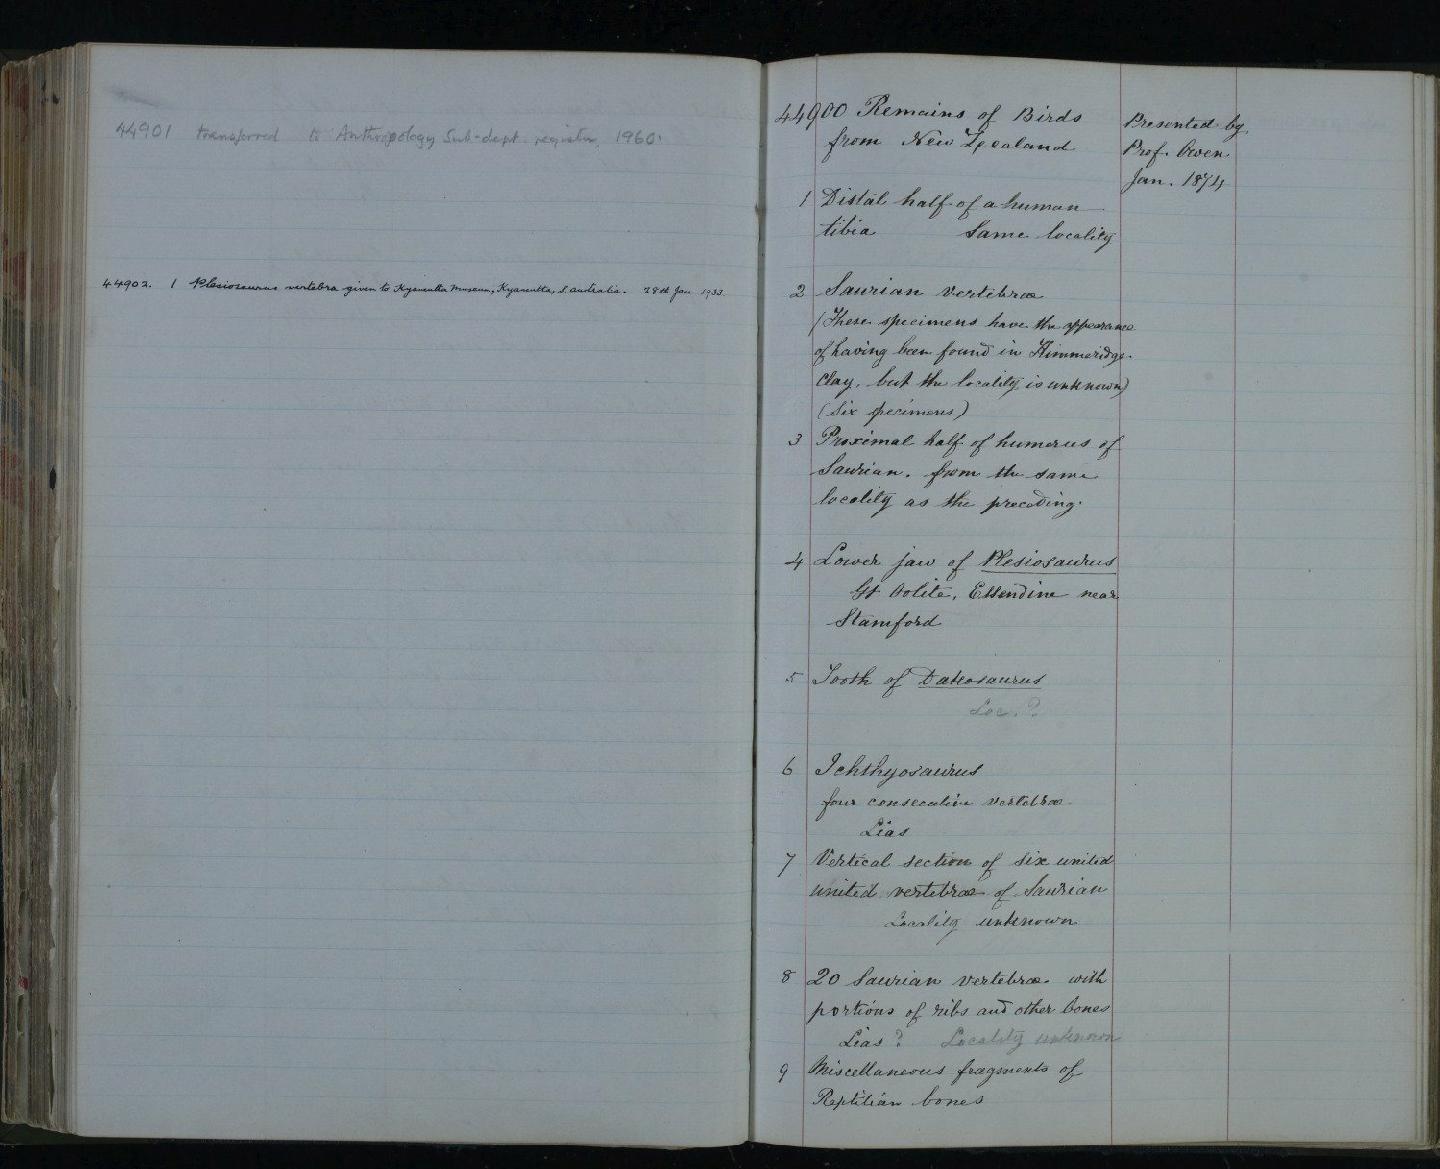 44901 transferred to Anthropology Sub-dept. register, 1960.
44902. 1 Plesiosaurus vertebra given to Kyancutta Museum, Kyancutta, S. Australia. 28th Jan 1933
44900 Remains of Birds
from New Zealand
Presented by
Prof. Owen
Jan. 1874
1 Distal half of a human
tibia Same locality
2 Saurian vertebræ
(These specimens have the appearance
of having been found in Kimmeridge
Clay, but the locality is unknown)
(Six specimens)
3 Proximal half of humerus of
Saurian. from the same
locality as the preceding.
4 Lower jaw of Plesiosaurus
Gt Oolite, Essendine near
Stamford
5 Tooth of Dakosaurus
Loc. ?
6 Ichthyosaurus
four consecutive vertebræ
Lias
7 Vertical section of six united
united vertebræ of Saurian
Locality unknown
8 20 Saurian vertebræ with
portions of ribs and other bones
Lias ? Locality unknown
9 Miscellaneous fragments of
Reptilian bones